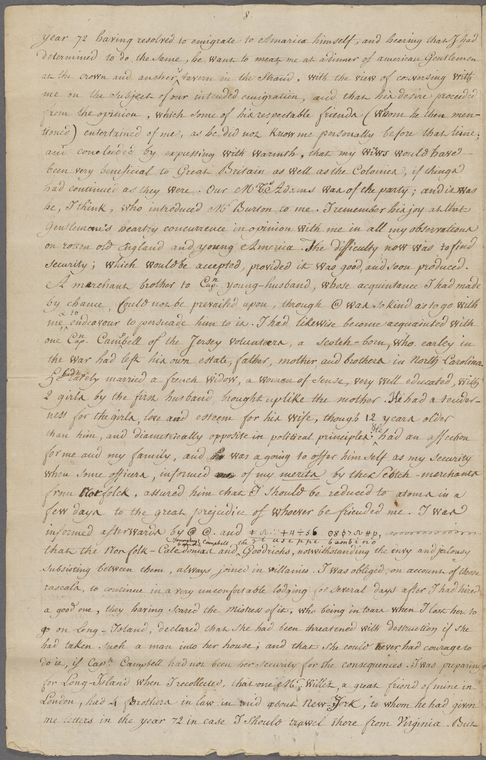 8
year 72 having resolved to emigrate to America himself, and hearing that I had
determined to do the same, he want to meet me at a dinner of american Gentlemen
at the crown and anchor tavern in the Strand, with the view of conversing with
me on the subject of our intended emigration, and that his desire proceeded
from the opinion, which some of his respectable friends (whom he then men-
tioned) entertained of me, as he did not know me personally before that time;
and concluded by expressing with warmth, that my wiws would have
been very beneficial to Great Britain as well as the Colonies, if things
had continued as they were. Our Adams was of the party; and it was
he, I think, who introduced Mr Burton to me. I remember his joy at that
Gentleman's hearty concurrence in opinion with me in all my observations
on rotten old England and young America. The difficulty now was to find
security; which would be accepted, provided it was good and soon produced.
A merchant brother to Capn young-husband, whose acquaintance I had made
by chance, could not be prevailed upon, though @ was so kind as to go with
me to endeavour to persuade him to it. I had likewise become acquainted with
one Capn Campbell of the Jersey volunteers, a Scotch-born, who early in
the war had left his own estate, father, mother and brothers in North Carolina
lately married a french widow, a woman of sense, very well educated, with
2 girls by the first husband brought up like the mother. He had a tender-
ness for the girls, love and esteem for his wife, though 12 years older
than him, and diametrically opposite in political principles. He had an affection
for me and my family, and was a going to offer him self as my security
when some officers, informed of my merits by the Scotch-merchants
from Norfolk, assured him that I should be reduced to atoms in a
few days to the great prejudice of whoever be friended me. I was
informed afterwards by @ @. and
Campbell, the giuseppe bambino
that the Norfolk-Caledonians and Goodricks, notwithstanding the envy and jealousy
subsisting between them, always joined in villainies. I was obliged, on account of those
rascals, to continue in a very uncomfortable lodging for several days after I had hired
a good one, they having scared the mistress of it, who being in tears when I lost how to
go on Long-Island, declared that she had been threatened with destruction if she
had taken such a man into her house; and that she could never had courage to
do it, if Capn Campbell had not been her security for the consequences. I was preparing
for Long-Island when I recollected, that one Mr Willet, a great friend of mine in
London, had 4 Brothers in law in and about New-York, to whom he had given
me letters in the year 72 in case I should travel there from Virginia. But